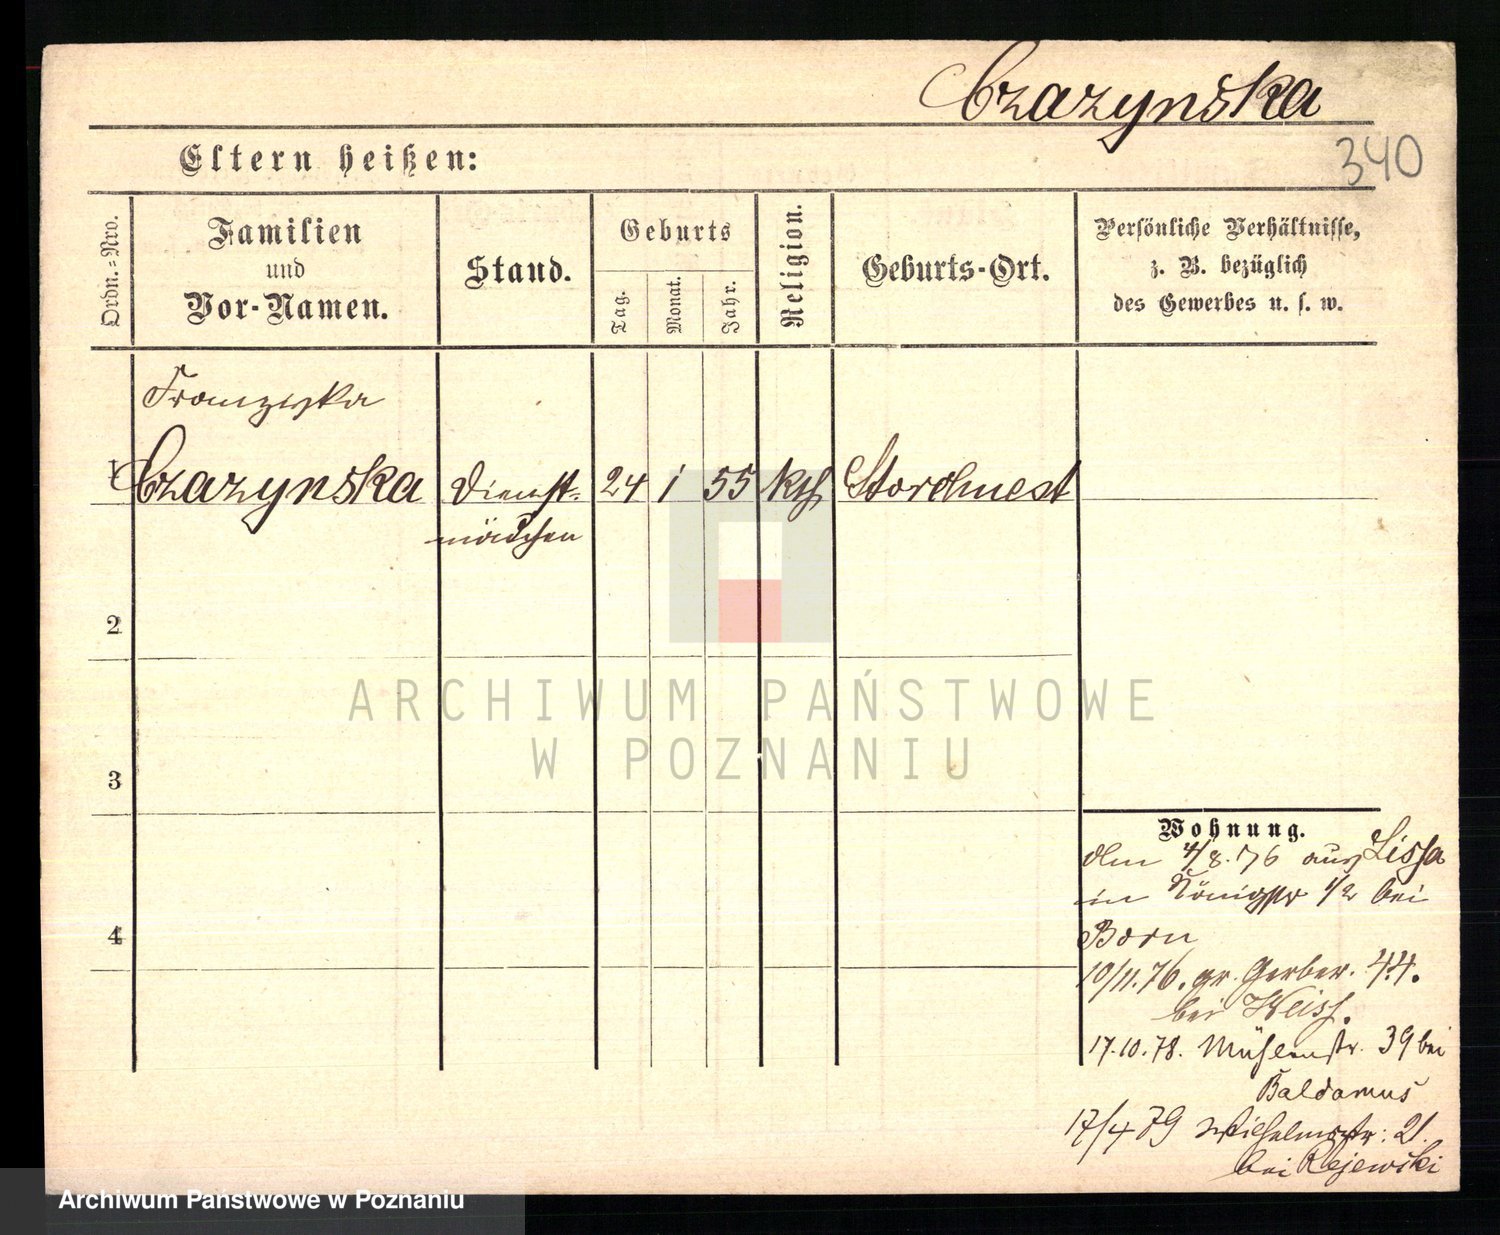 Czazynska
340
Eltern heißen:
Ordn.-Nro.
Familien
und
Vor-Namen.
Stand.
Geburts
Tag.
Monat.
Jahr.
Religion.
Geburts-Ort.
Persönliche Verhältnisse,
z. B. bezüglich
des Gewerbes u. s. w.
Franziska
1 Czazynska Dienst- 24 1 55 kth Storchnest
mädchen
2
3
4
Wohnung.
den 4/8.76 aus Lissa
in Königstr 1/2 bei
Born
10/11.76. gr. Gerber. 44.
bei Weiss.
17.10.78. Mühlenstr. 39 bei
Baldamus
17/4 79 Wilhelmsstr: 21.
bei Rejewski
ARCHIWUM PAŃSTWOWE
W POZNANIU
Archiwum Państwowe w Poznaniu